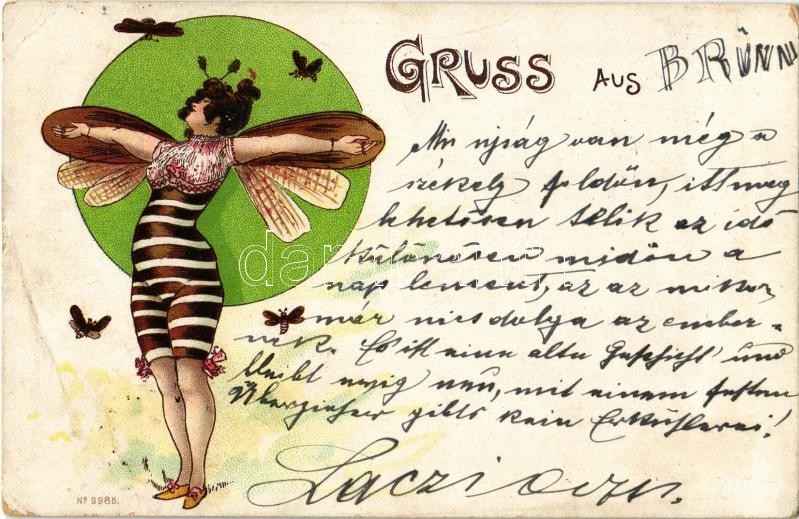 GRUSS AUS BRÜNN
Mi ujság van még a
székely földön, itt meg
lehetősen telik az idő
különösen midőn a
nap lement, az az mikor
már nics dolga az ember-
nek. Es ist eine alte Geschicht und
bleibt ewig neu, mit einem festen
Überzieher gibts kein Erkühlerei!
Laczi
No 9985.